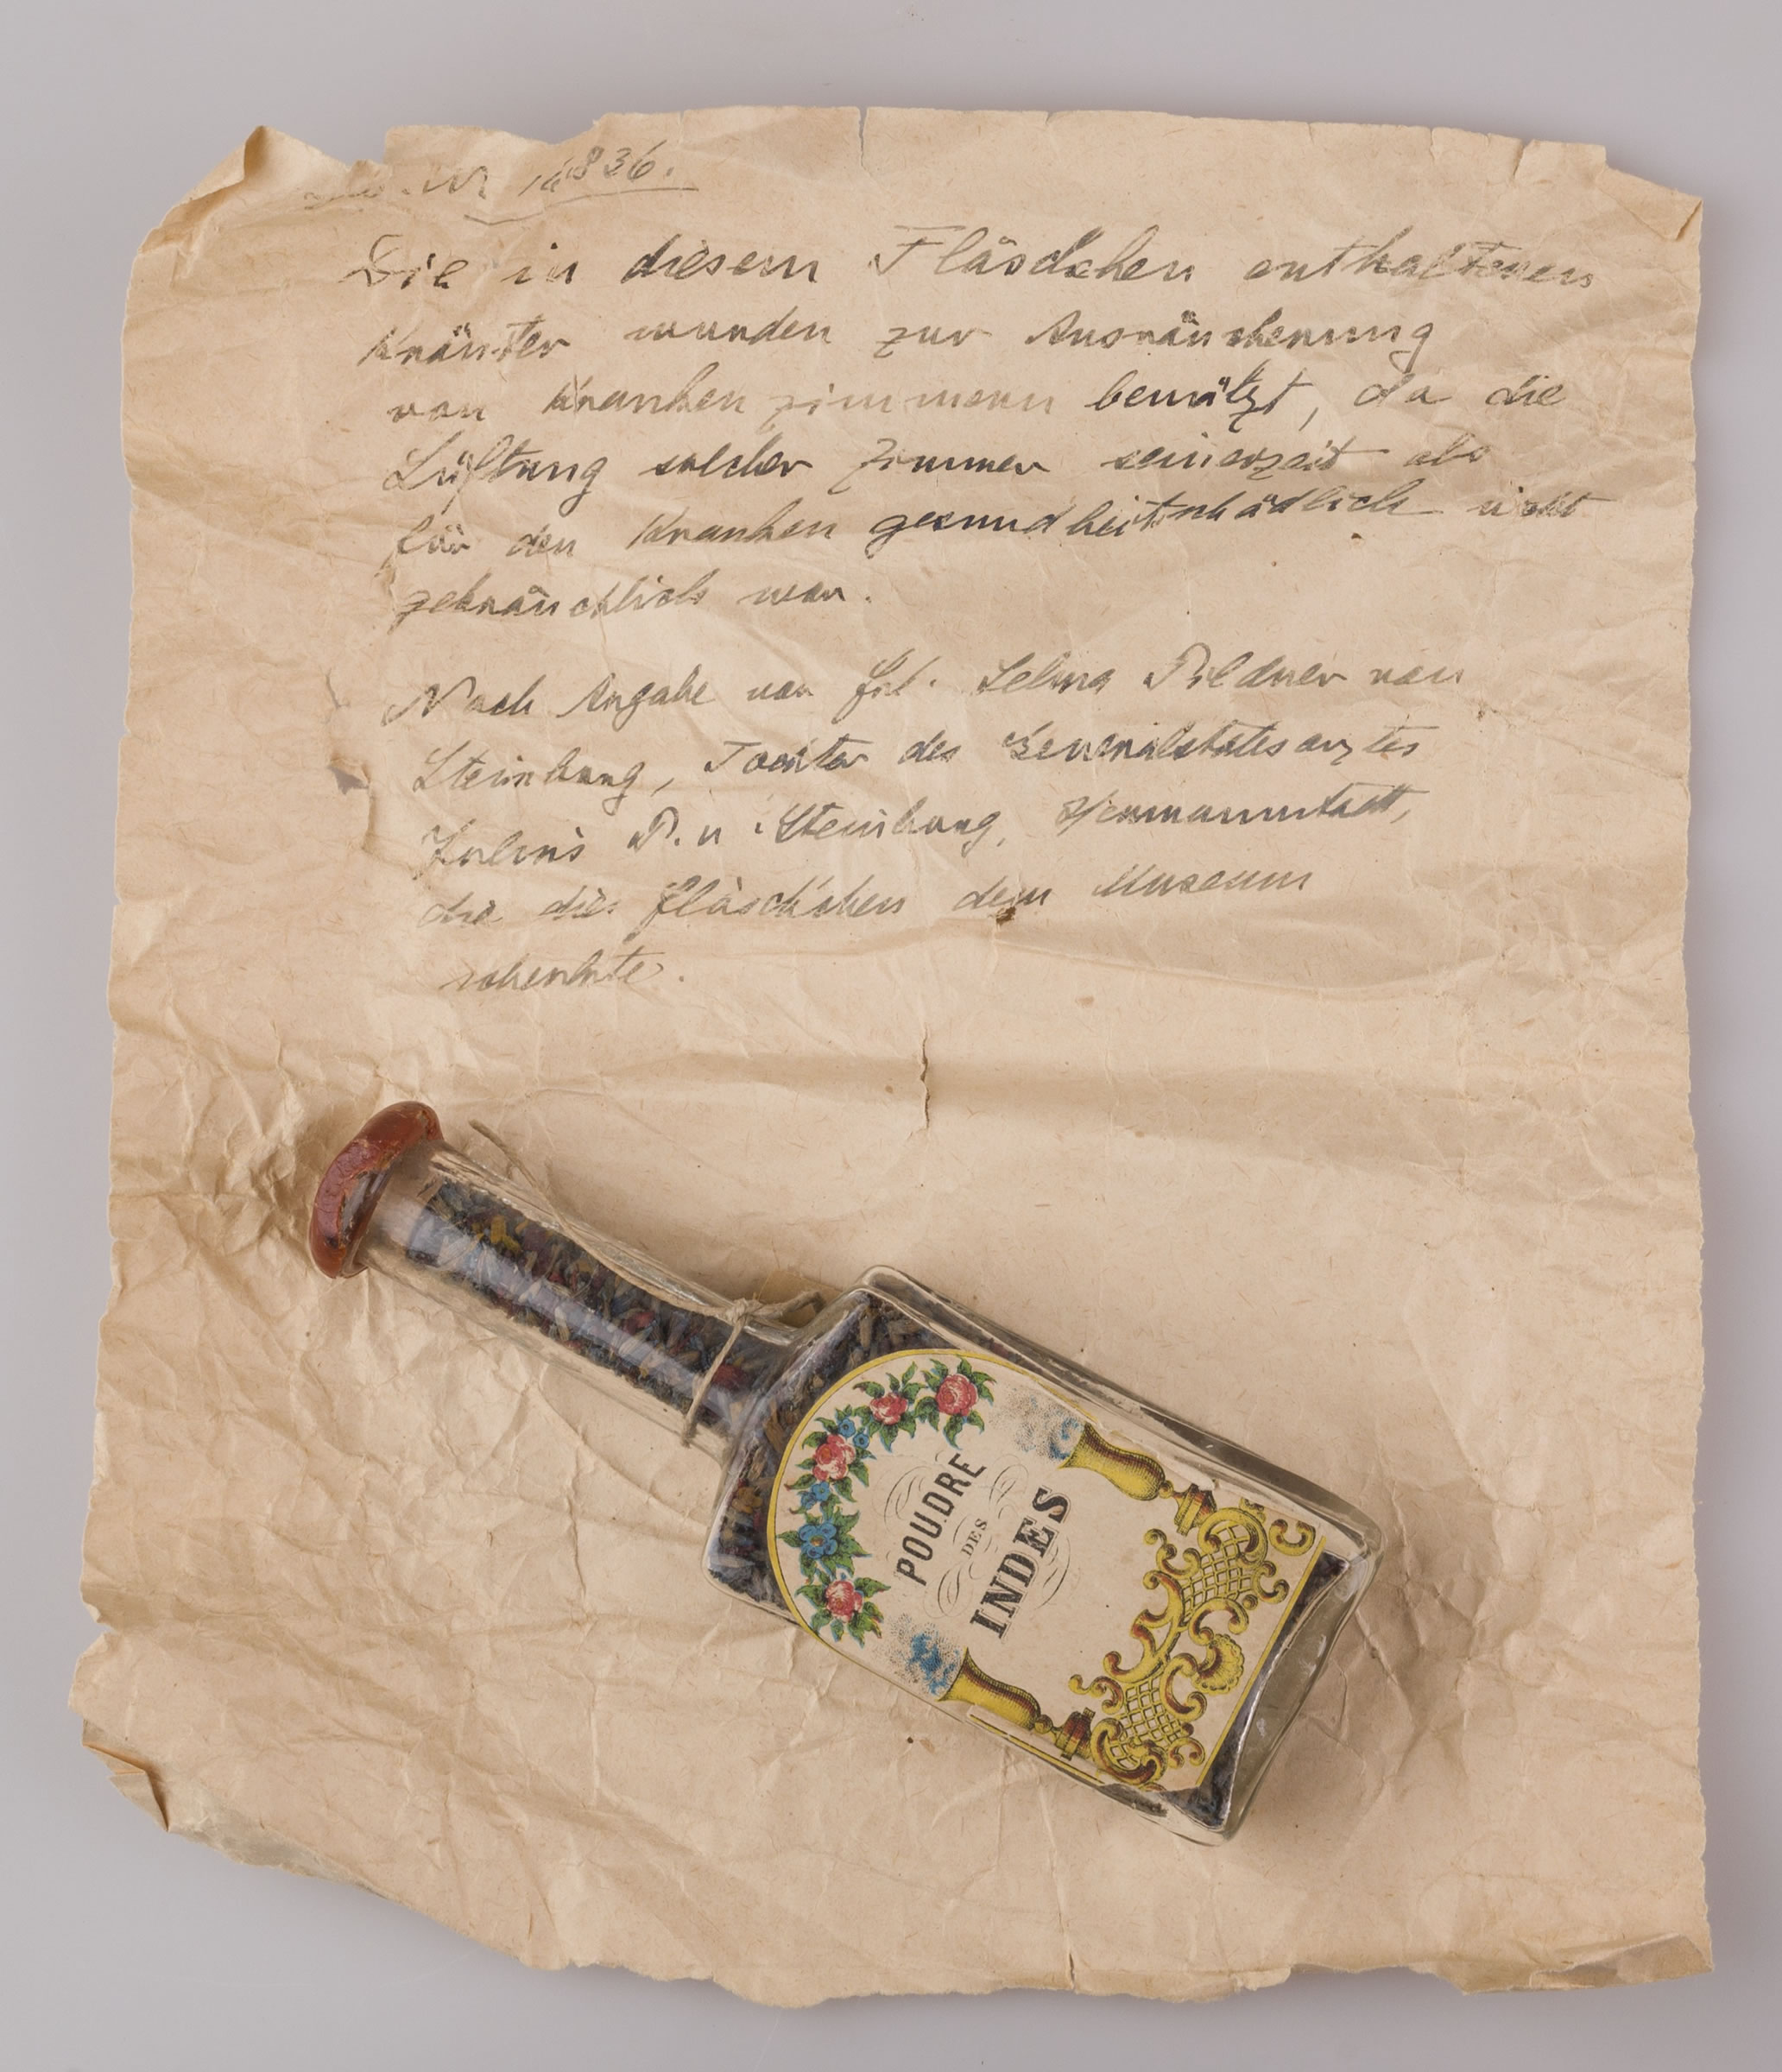 Nr 14836.
Die in diesem Fläschchen enthaltenen
Kräuter wurden zur Ausräucherung
von Krankenzimmern benützt, da die
Lüftung solcher Zimmer seinerzeit als
für den Kranken gesundheitschädlich nicht
gebräuchlich war.
Nach Angabe von Frl. Selma Pildner von
Steinburg, Tochter des Generalstabsarztes
Julius P. v Steinburg, Hermannstadt,
die dies Fläschchen dem Museum
schenkte.
POUDRE
DES
INDES